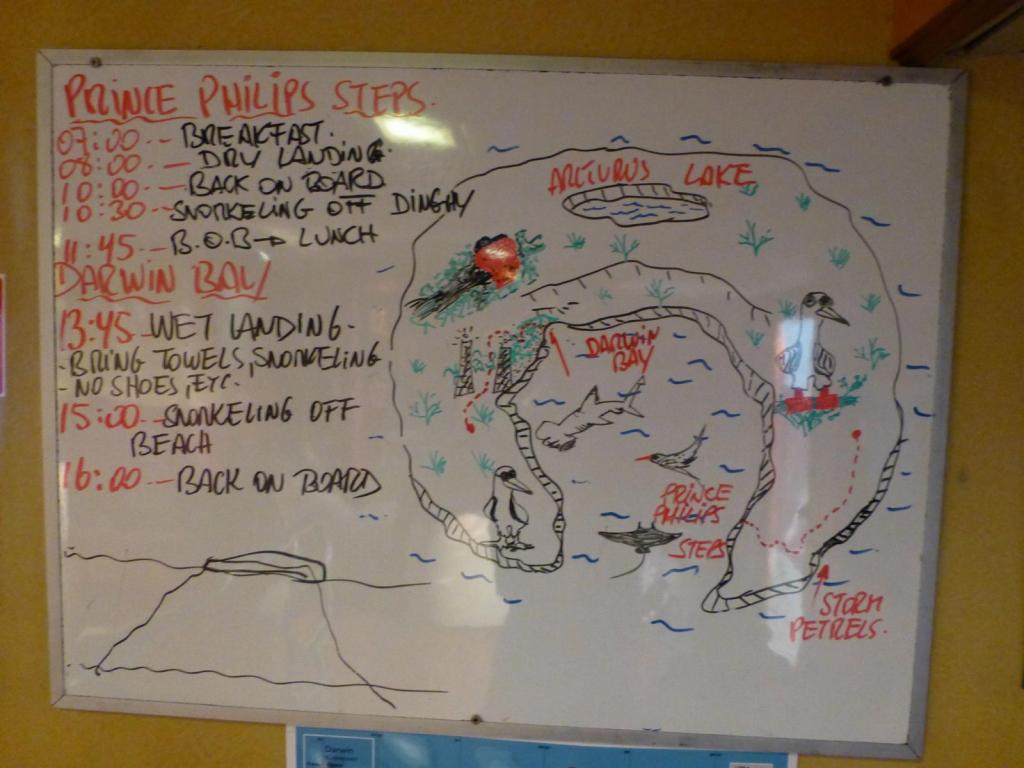 PRINCE PHILIPS STEPS.
07:00 -- BREAKFAST.
08:00 -- DRY LANDING.
10:00 -- BACK ON BOARD
10:30 -- SNORKELING OFF DINGHY
11:45 -- B.O.B → LUNCH
DARWIN BAY
13:45 -- WET LANDING -
- BRING TOWELS, SNORKELING
- NO SHOES, ETC.
15:00 -- SNORKELING OFF
BEACH
16:00 -- BACK ON BOARD
ARCTURUS LAKE
DARWIN
BAY
PRINCE
PHILIPS
STEPS
STORM
PETRELS.
Darwin